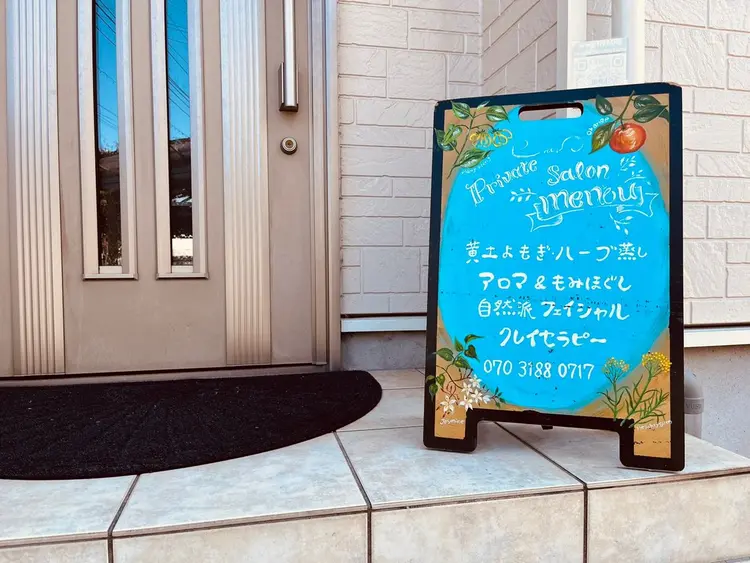 Private Salon
menou
黄土よもぎ・ハーブ蒸し
アロマ & もみほぐし
自然派 フェイシャル
クレイセラピー
070 3188 0717